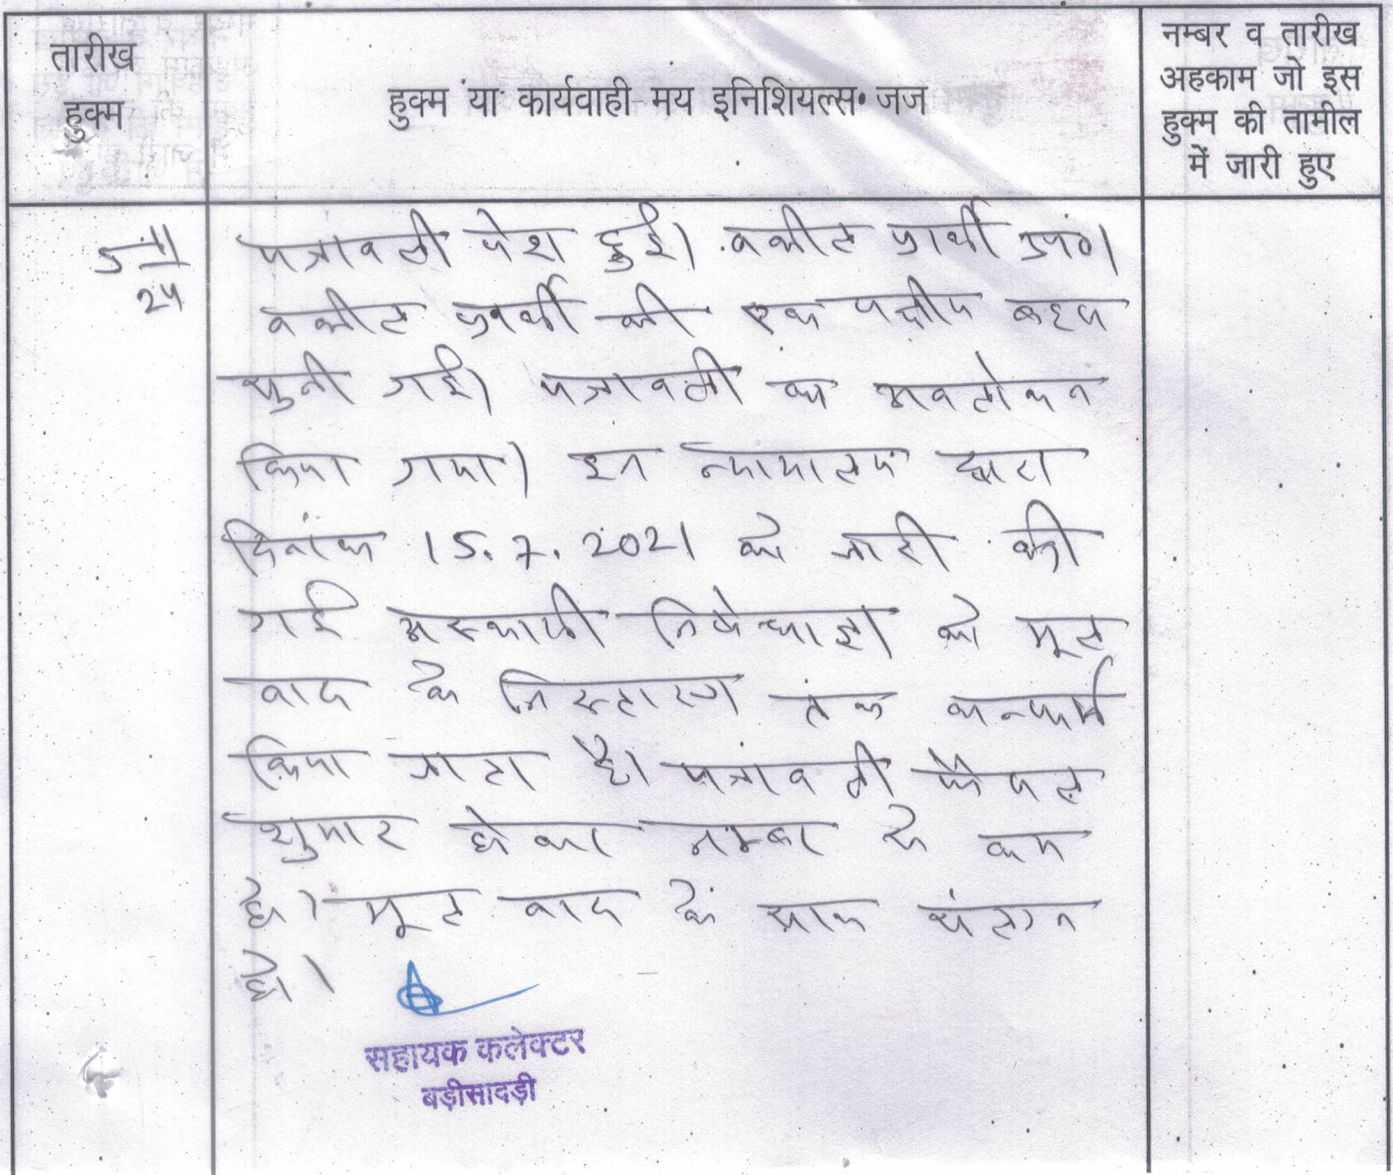 तारीख
हुक्म
हुक्म या कार्यवाही मय इनिशियल्स जज
नम्बर व तारीख
अहकाम जो इस
हुक्म की तामील
में जारी हुए
5/11
24
पत्रावली पेश हुई। वकील प्रार्थी उप०।
वकील प्रार्थी की एक पक्षीय बहस
सुनी गई। पत्रावली का अवलोकन
किया गया। इस न्यायालय द्वारा
दिनांक 15.7.2021 को जारी की
गई अस्थायी निषेधाज्ञा को मूल
वाद के निस्तारण तक कन्फर्म
किया जाता है। पत्रावली फैसल
शुमार होकर नम्बर से कम
हो। मूल वाद के साथ संलग्न
हो।
सहायक कलेक्टर
बड़ीसादड़ी